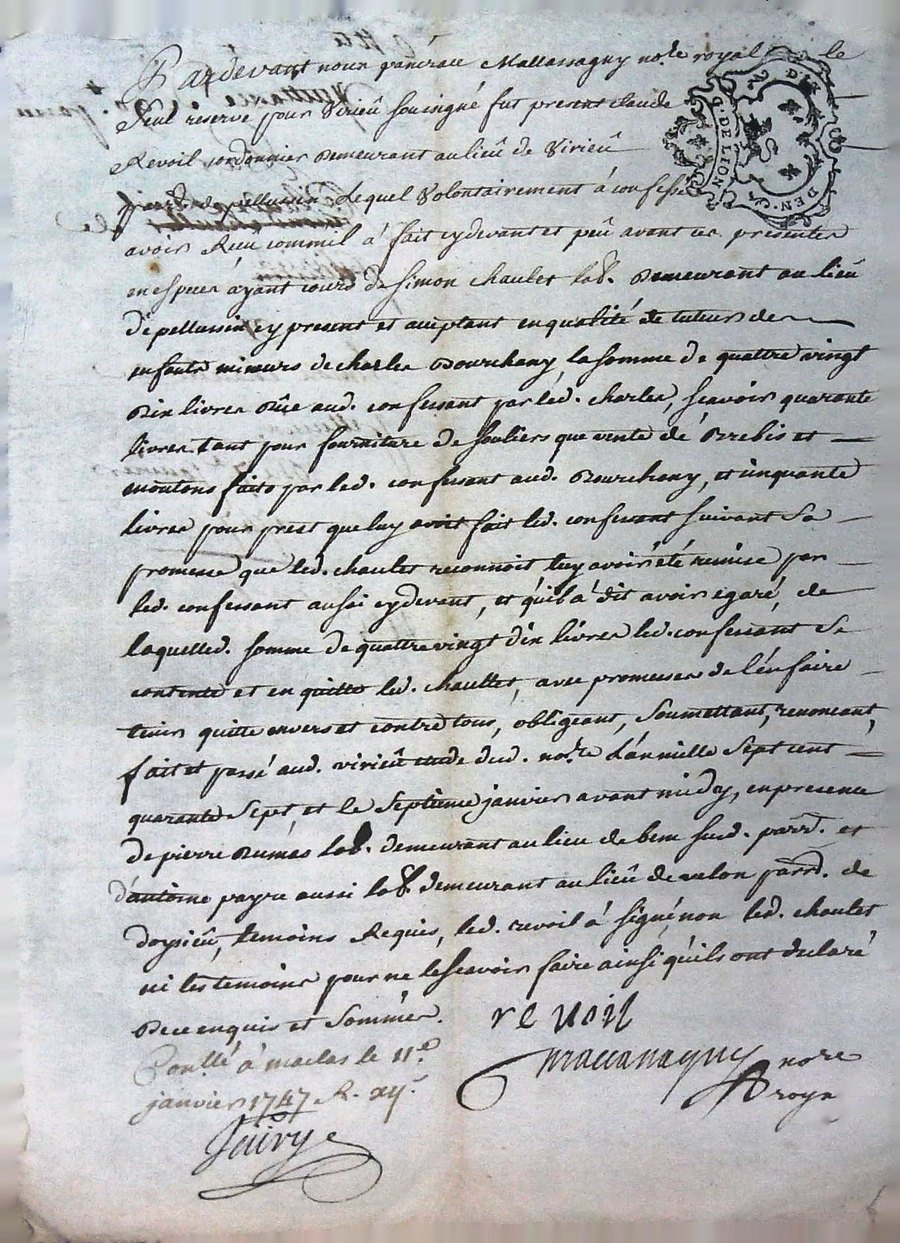 Pardevant nous pancrace Mallassagny no.re royal le
seul reservé pour Virieû soussigné fut present claude
Revoil cordonnier demeurant au lieû de Virieû
parr.d de pellussin Lequel Volontairement à confessé
avoir Reçu comm'il à fait cydevant et peû avant ces presentes
en especes ayant cours de Simon chaulet lab.r demeurant au lieu
de pellussin cy present et acceptant en qualité de tuteur des
enfants mineurs de charles Bourchany, la somme de quattre vingt
dix livres dûe aud. confessant par led. charles, sçavoir quarante
livres tant pour fourniture de souliers que vente de Brebis et
moutons faits par led. confessant aud. Bourchany, et cinquante
livres pour prest que luy avoit fait led. confessant suivant Sa
promesse que led. chaulet reconnoit luy avoir été remise par
led. confessant aussi cydevant, et qu'il à dit avoir égaré, de
laquelled. somme de quattre vingt dix livres led. confessant Se
contente et en quitte led. chaullet, avec promesses de l'en faire
tenir quitte envers et contre tous, obligeant, Soumettant, renonceant,
fait et passé aud. virieû etude dud. no.re L'an mille Sept cent
quarante Sept et le Septieme janvier avant midy, en presence
de pierre Dumas lab.r demeurant au lieu de bem sud. parr.d et
d'antoine payre aussi lab.r demeurant au lieû de aulon parr.d de
doysieû, temoins Requis, led. revoil à signé, non led. chaulet
ni les temoins pour ne le sçavoir faire ainsi qu'ils ont declaré
De ce enquis et Sommés.
revoil
Mallassagny no.re
royal
Conllé à maclas le 11.e
janvier 1747 R. xij s.
G. DE LION
DEN.